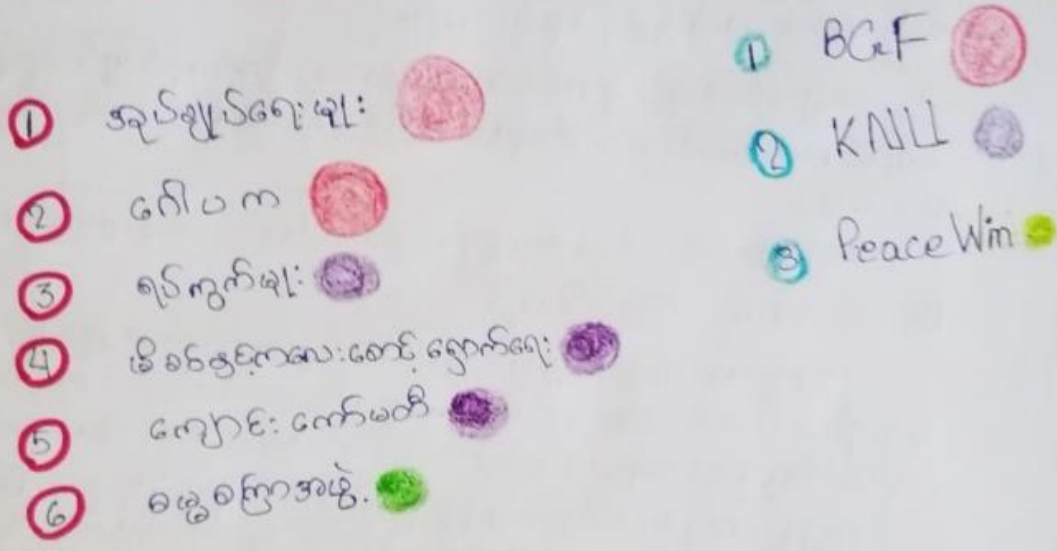 1 အုပ်ချုပ်ရေးမှူး
2 ဂေါပက
3 ရပ်ကွက်မှူး
4 မိခင်နှင့်ကလေးစောင့်ရှောက်ရေး
5 ကျောင်းကော်မတီ
6 ဓမ္မစကြာအဖွဲ့.
1 BGF
2 KNU
3 Peace Win